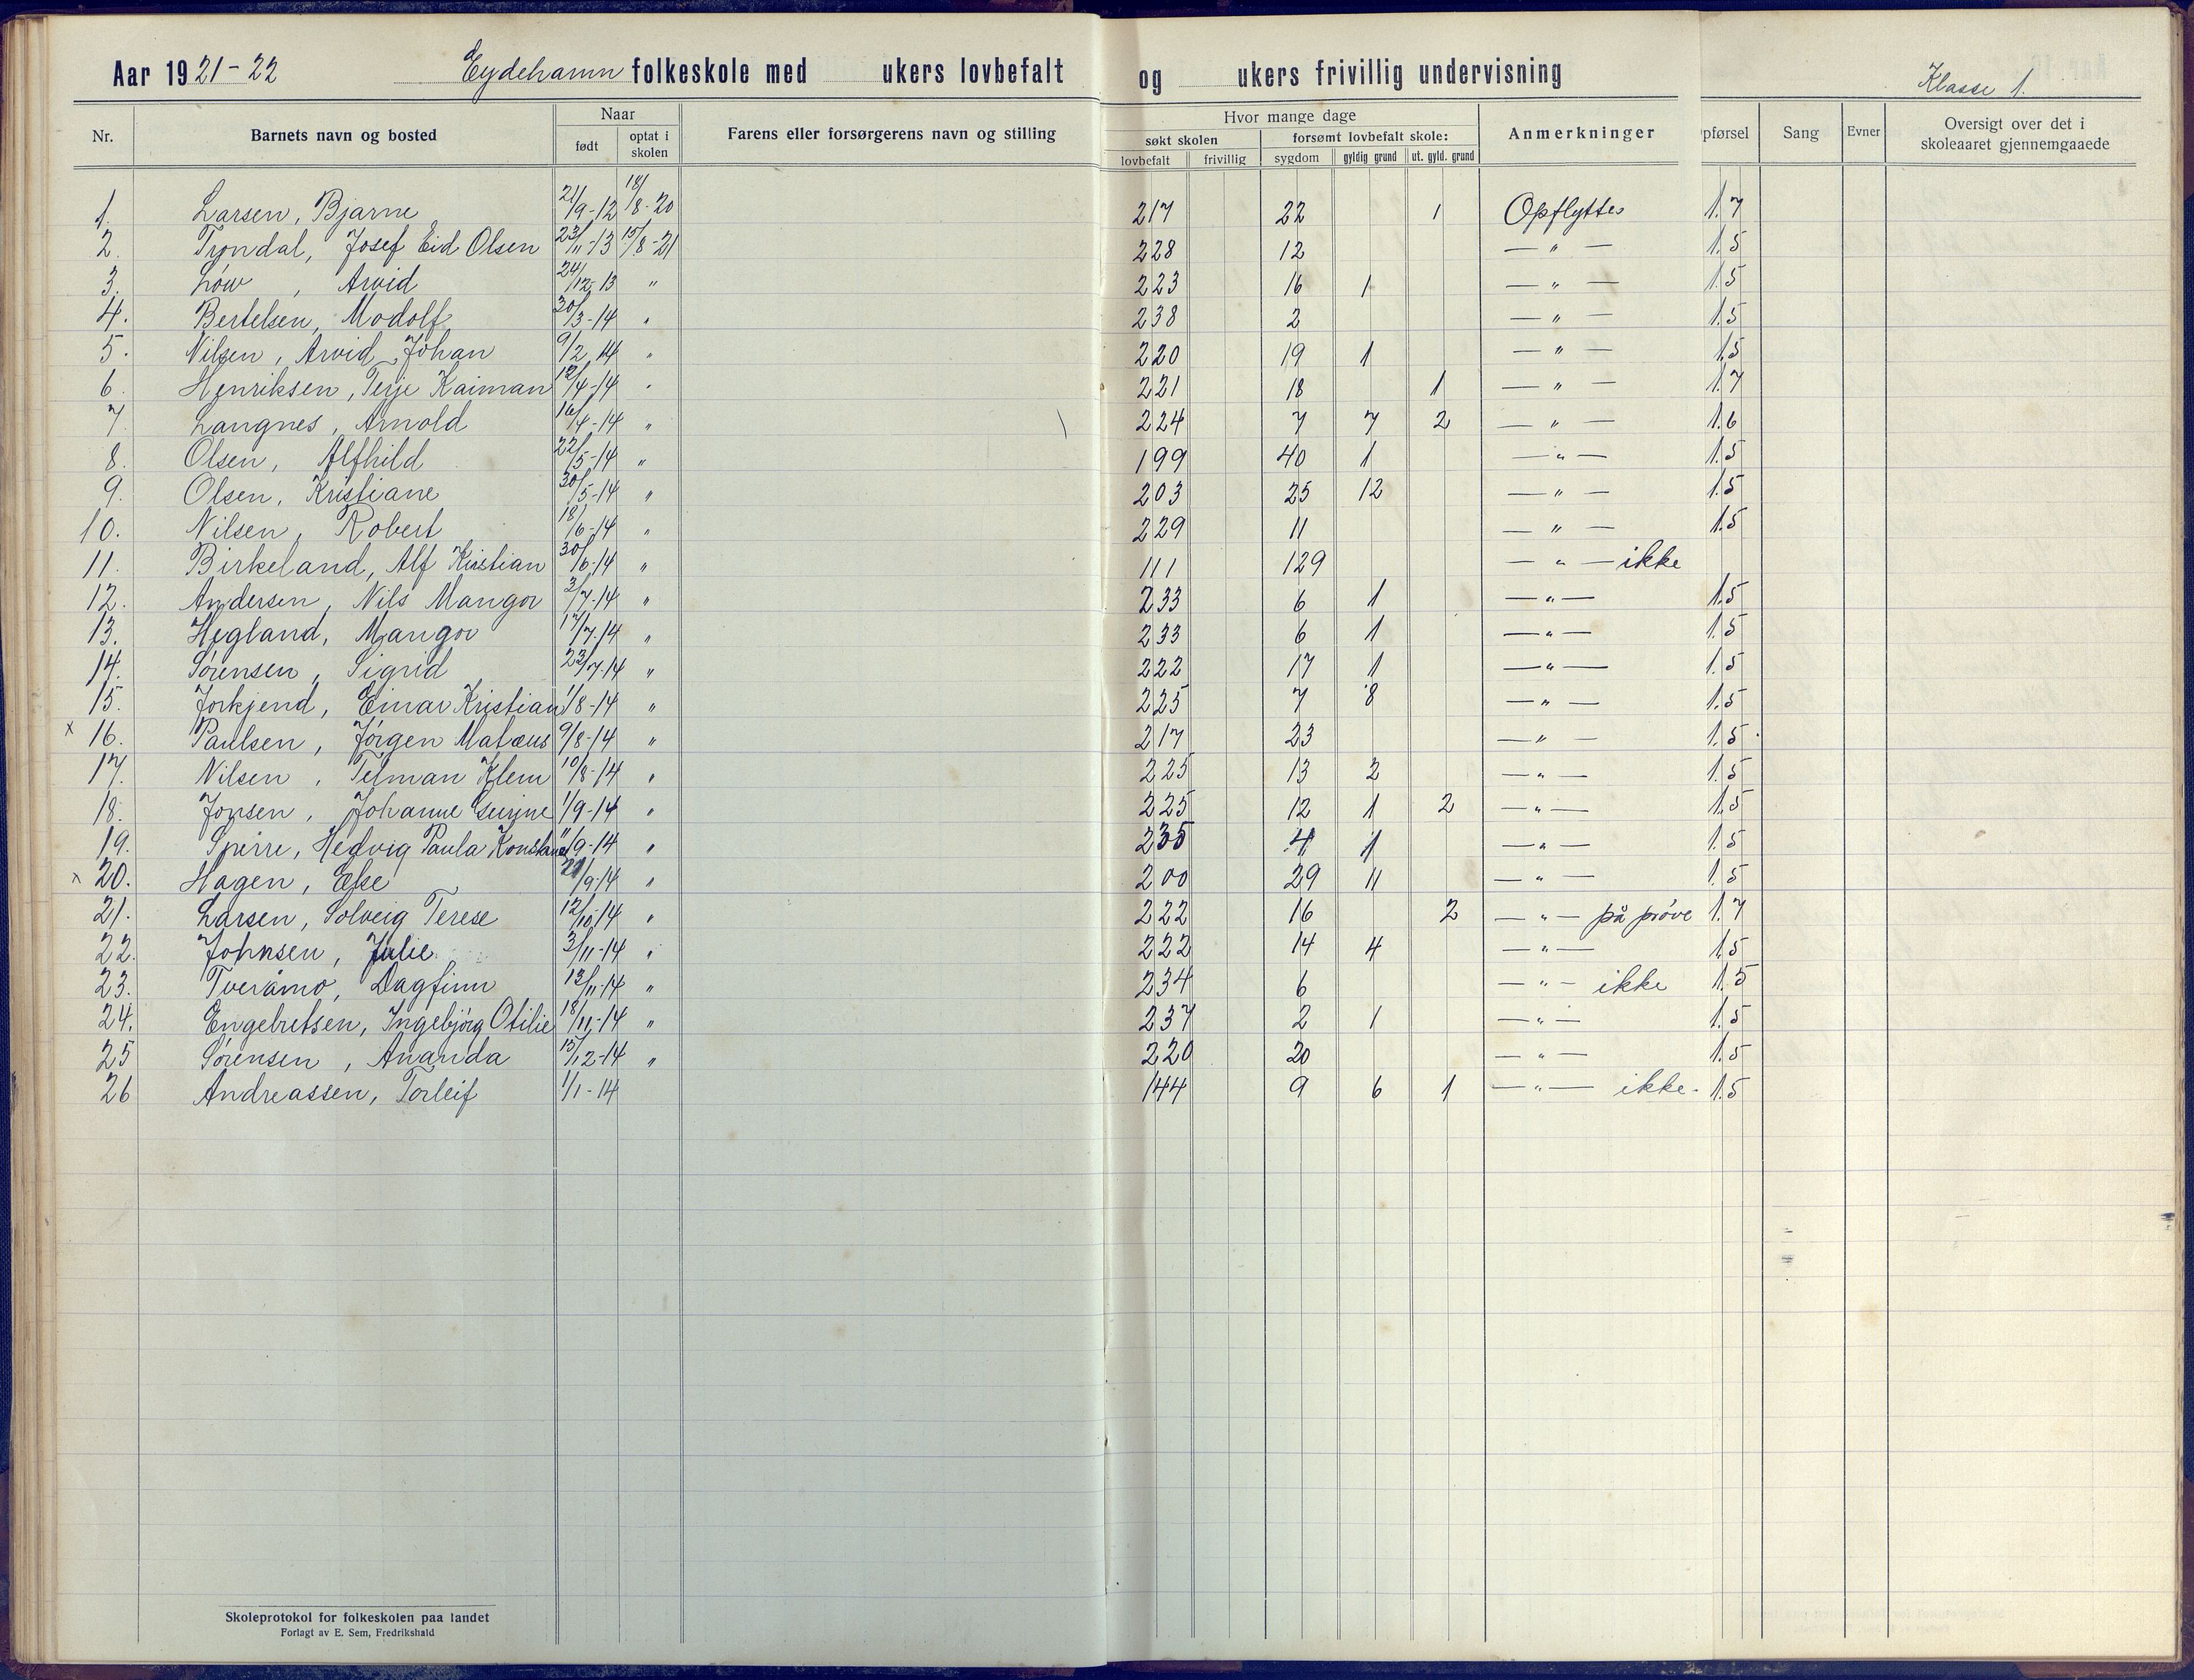 Aar 1921-22 Eydehamn folkeskole med ukers lovbefalt og ukers frivillig undervisning
Klasse 1.
Nr. Barnets navn og bosted Naar født optat i skolen Farens eller forsørgerens navn og stilling Hvor mange dage søkt skolen lovbefalt frivillig forsømt lovbefalt skole: sygdom gyldig grund ut. gyld. grund Anmerkninger pførsel Sang Evner Oversigt over det i skoleaaret gjennemgaaede
1. Larsen, Bjarne 21/9-12 18/8-20 217 22 1 Opflyttes 1.7
2. Trondal, Josef Eid Olsen 23/11-13 15/8-21 228 12 — " — 1.5
3. Löw, Arvid 24/12-13 " 223 16 1 — " — 1.5
4. Bertelsen, Modolf 30/3-14 " 238 2 — " — 1.5
5. Nilsen, Arvid Johan 9/2 14 " 220 19 1 — " — 1.5
6. Henriksen, Terje Kaiman 12/4-14 " 221 18 1 — " — 1.7
7. Langnes, Arnold 16/4-14 " 224 7 7 2 — " — 1.6
8. Olsen, Alfhild 22/5-14 " 199 40 1 — " — 1.5
9. Olsen, Kristiane 30/5-14 " 203 25 12 — " — 1.5
10. Nilsen, Robert 18/6-14 " 229 11 — " — 1.5
11. Birkeland, Alf Kristian 30/6-14 " 111 129 — " — ikke
12. Andersen, Nils Mangor 3/7-14 " 233 6 1 — " — 1.5
13. Hegland, Mangor 17/7-14 " 233 6 1 — " — 1.5
14. Sørensen, Sigrid 23/7-14 " 222 17 1 — " — 1.5
15. Jorkjend, Einar Kristian 1/8-14 " 225 7 8 — " — 1.5
x 16. Paulsen, Jörgen Matæus 9/8-14 " 217 23 — " — 1.5
17. Nilsen, Telman Klem 10/8-14 " 225 13 2 — " — 1.5
18. Jonsen, Johanne 1/9-14 " 225 12 1 2 — " — 1.5
19. Sperre, Hedvig Paula 11/9-14 " 235 4 1 — " — 1.5
x 20. Hagen, Else 21/9-14 " 200 29 11 — " — 1.5
21. Larsen, Solveig Terese 12/10-14 " 222 16 2 — " — på prøve 1.7
22. Johnsen, Julie 3/11-14 " 222 14 4 — " — 1.5
23. Tveråmo, Dagfinn 13/11-14 " 234 6 — " — ikke 1.5
24. Engebretsen, Ingebjörg Otilie 18/11-14 " 237 2 1 — " — 1.5
25 Sørensen, Ananda 15/12-14 " 220 20 — " — 1.5
26 Andreassen, Torleif 1/1-14 144 9 6 1 — " — ikke. 1.5
Skoleprotokol for folkeskolen paa landet
Forlagt av E. Sem, Fredrikshald